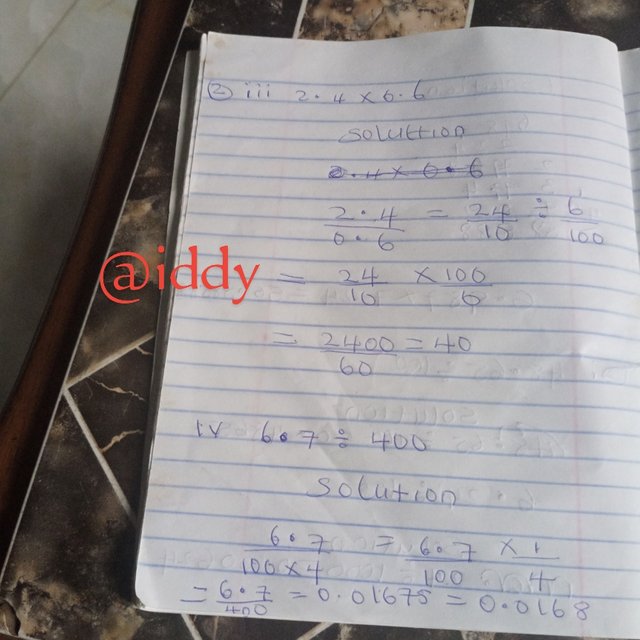 ② iii 2.4 × 0.6
Solution
2.4 × 0.6
2.4/0.6 = 24/10 ÷ 6/100
@iddy
= 24/10 × 100/6
= 2400/60 = 40
iv 6.7 ÷ 400
Solution
6.7/100×4 = 6.7/100 × 1/4
= 6.7/400 = 0.01675 = 0.0168